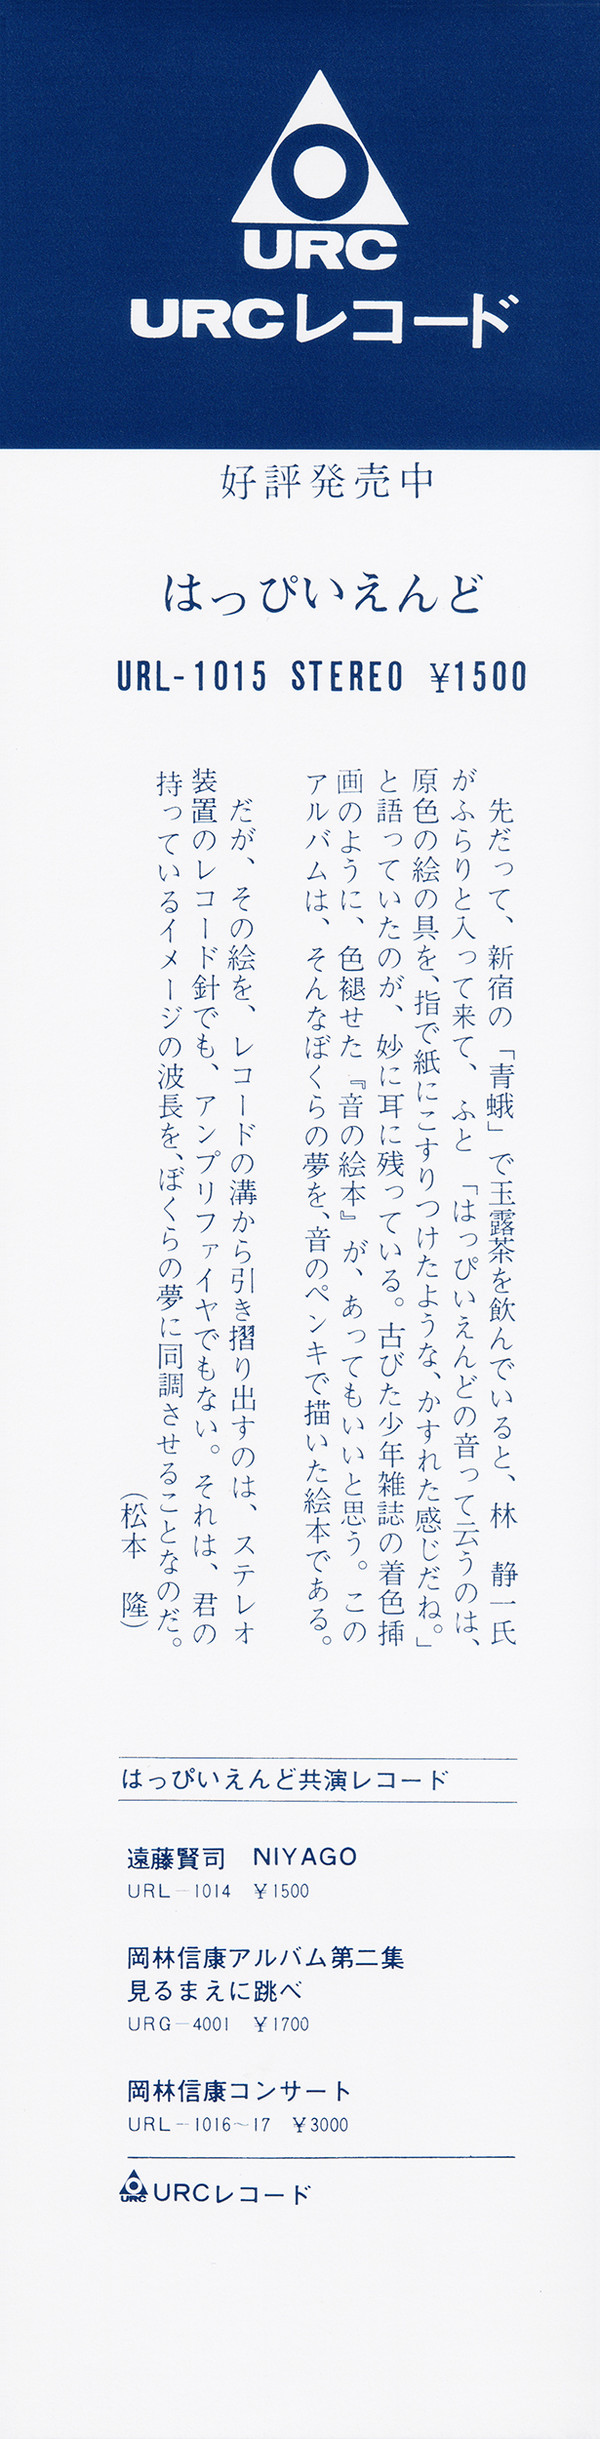 URC
URCレコード
好評発売中
はっぴいえんど
URL-1015 STEREO ¥1500
先だって、新宿の「青蛾」で玉露茶を飲んでいると、林　静一氏
がふらりと入って来て、ふと「はっぴいえんどの音って云うのは、
原色の絵の具を、指で紙にこすりつけたような、かすれた感じだね。」
と語っていたのが、妙に耳に残っている。古びた少年雑誌の着色挿
画のように、色褪せた『音の絵本』が、あってもいいと思う。この
アルバムは、そんなぼくらの夢を、音のペンキで描いた絵本である。
だが、その絵を、レコードの溝から引き摺り出すのは、ステレオ
装置のレコード針でも、アンプリファイヤでもない。それは、君の
持っているイメージの波長を、ぼくらの夢に同調させることなのだ。
（松本　隆）
はっぴいえんど共演レコード
遠藤賢司　NIYAGO
URL－1014　¥1500
岡林信康アルバム第二集
見るまえに跳べ
URG－4001　¥1700
岡林信康コンサート
URL－1016～17　¥3000
URC URCレコード